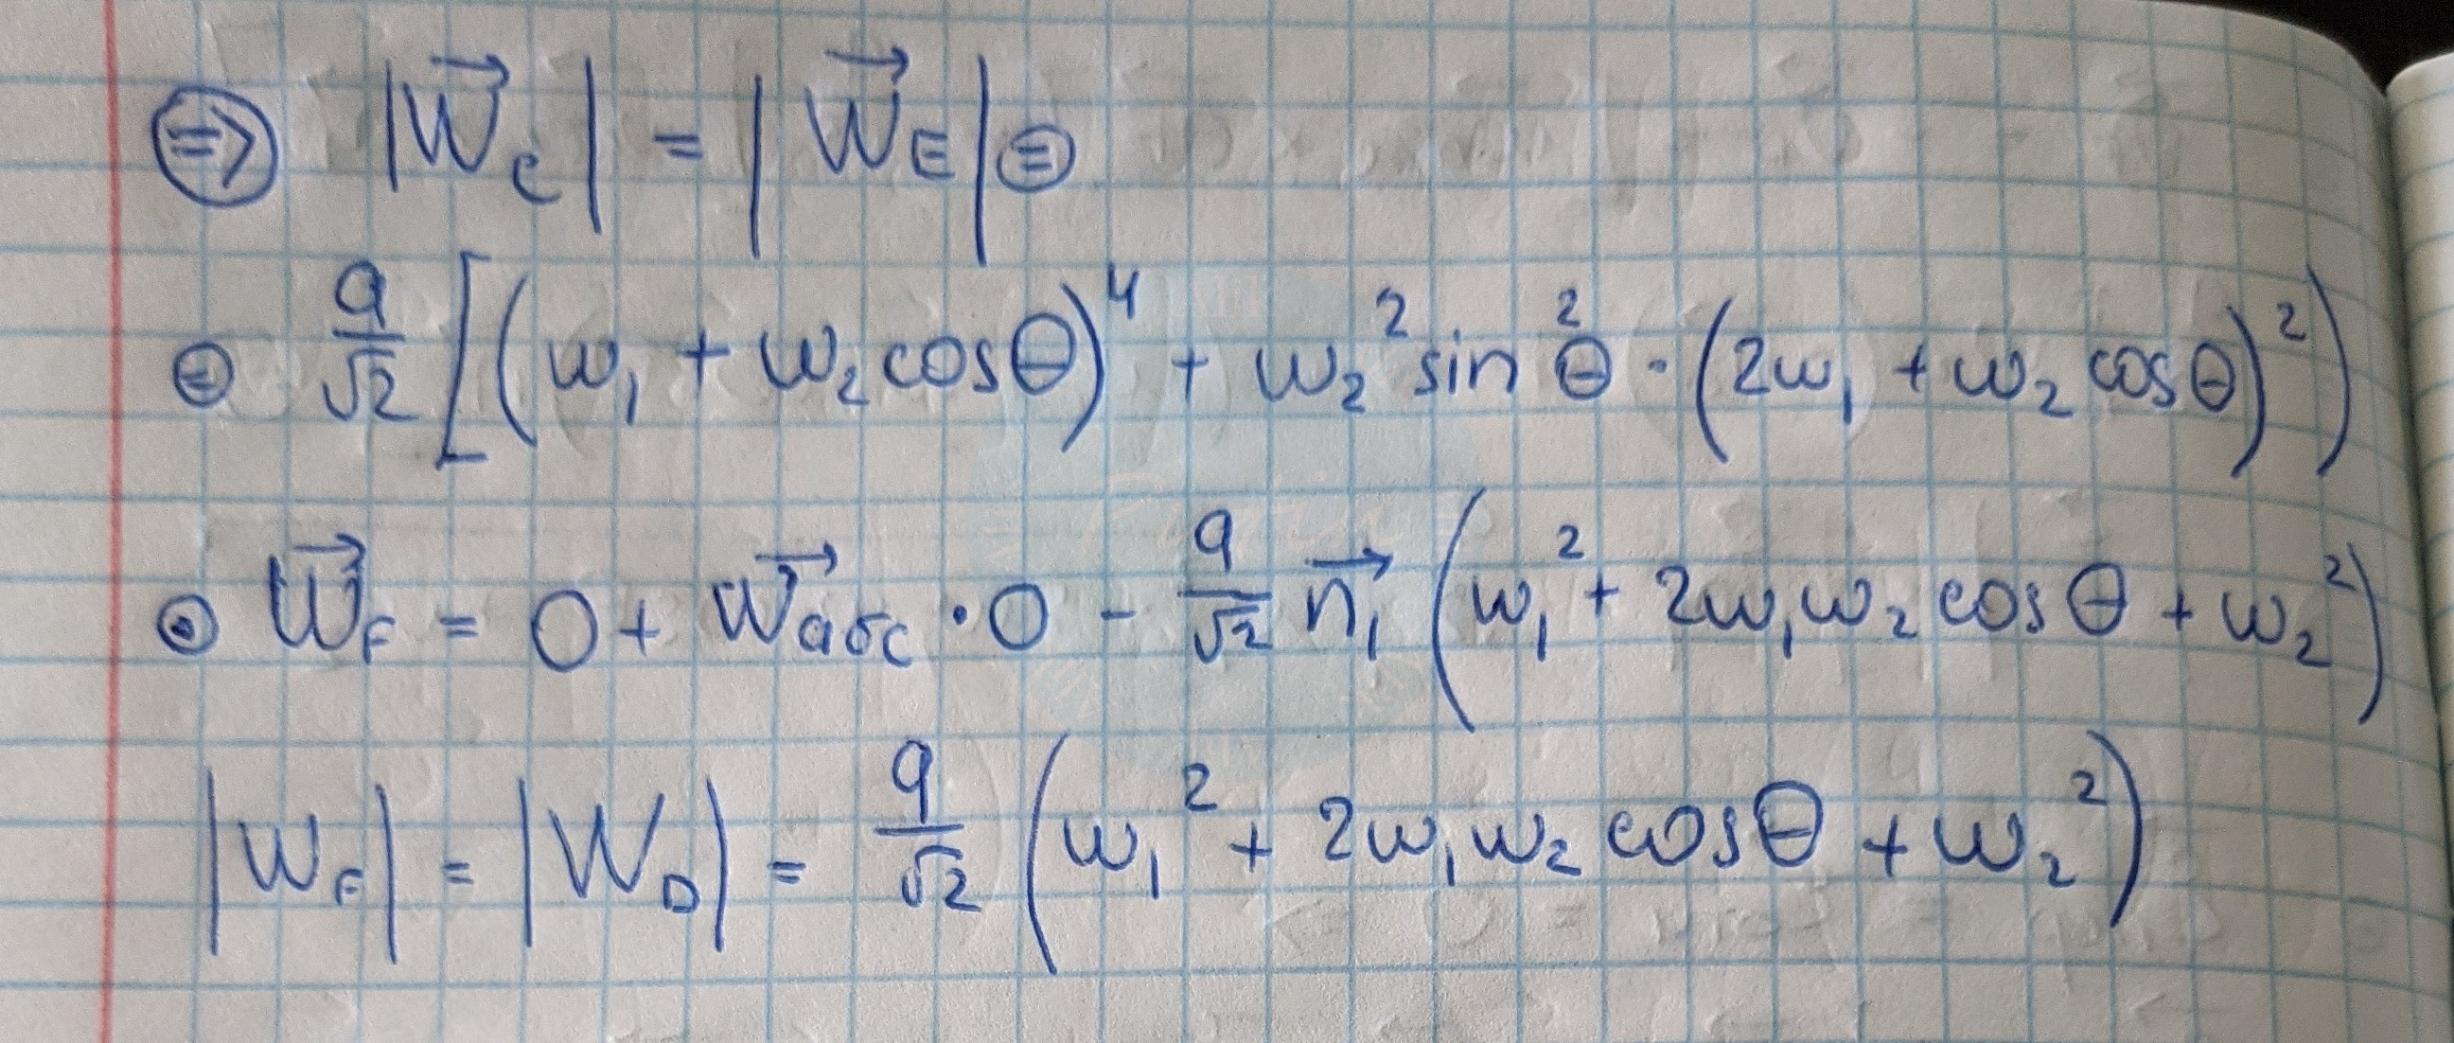 ⇒ |W⃗_c| = |W⃗_E| ⊜
⊜ a/√2 [(ω₁ + ω₂ cosθ)⁴ + ω₂² sin²θ · (2ω₁ + ω₂ cosθ)²)
⊙ W⃗_F = 0 + W⃗_абс · 0 − a/√2 n⃗₁ (ω₁² + 2ω₁ω₂ cosθ + ω₂²)
|W_F| = |W_D| = a/√2 (ω₁² + 2ω₁ω₂ cosθ + ω₂²)